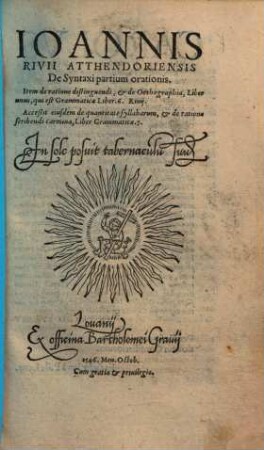 IOANNIS
RIVII ATTHENDORIENSIS
De Syntaxi partium orationis.
Item de ratione distinguendi, & de Orthographia, Liber
unus, qui est Grammaticæ Liber.6. Rivij.
Accessit eiusdem de quantitate syllabarum, & de ratione
scribendi carmina, Liber Grammaticæ.7.
In sole posuit tabernaculū suū
Lovanij
Ex officina Bartholomei Gravij
1546. Men. Octob.
Cum gratia & privilegio.